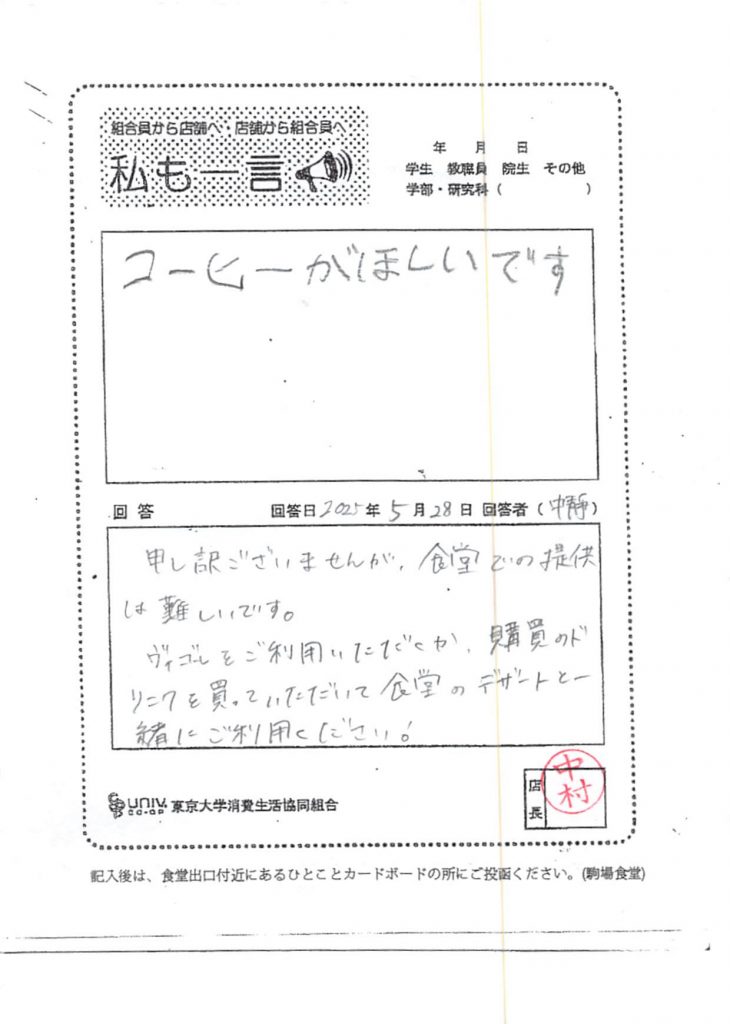 組合員から店舗へ・店舗から組合員へ
私も一言
年 月 日
学生 教職員 院生 その他
学部・研究科( )
コーヒーがほしいです
回答 回答日2025年5月28日 回答者(中静)
申し訳ございませんが、食堂での提供
は難しいです。
ヴィゴレをご利用いただくか、購買のド
リンクを買っていただいて食堂のデザートと一
緒にご利用ください!
UNIV.
CO-OP
東京大学消費生活協同組合
店長
中村
記入後は、食堂出口付近にあるひとことカードボードの所にご投函ください。(駒場食堂)